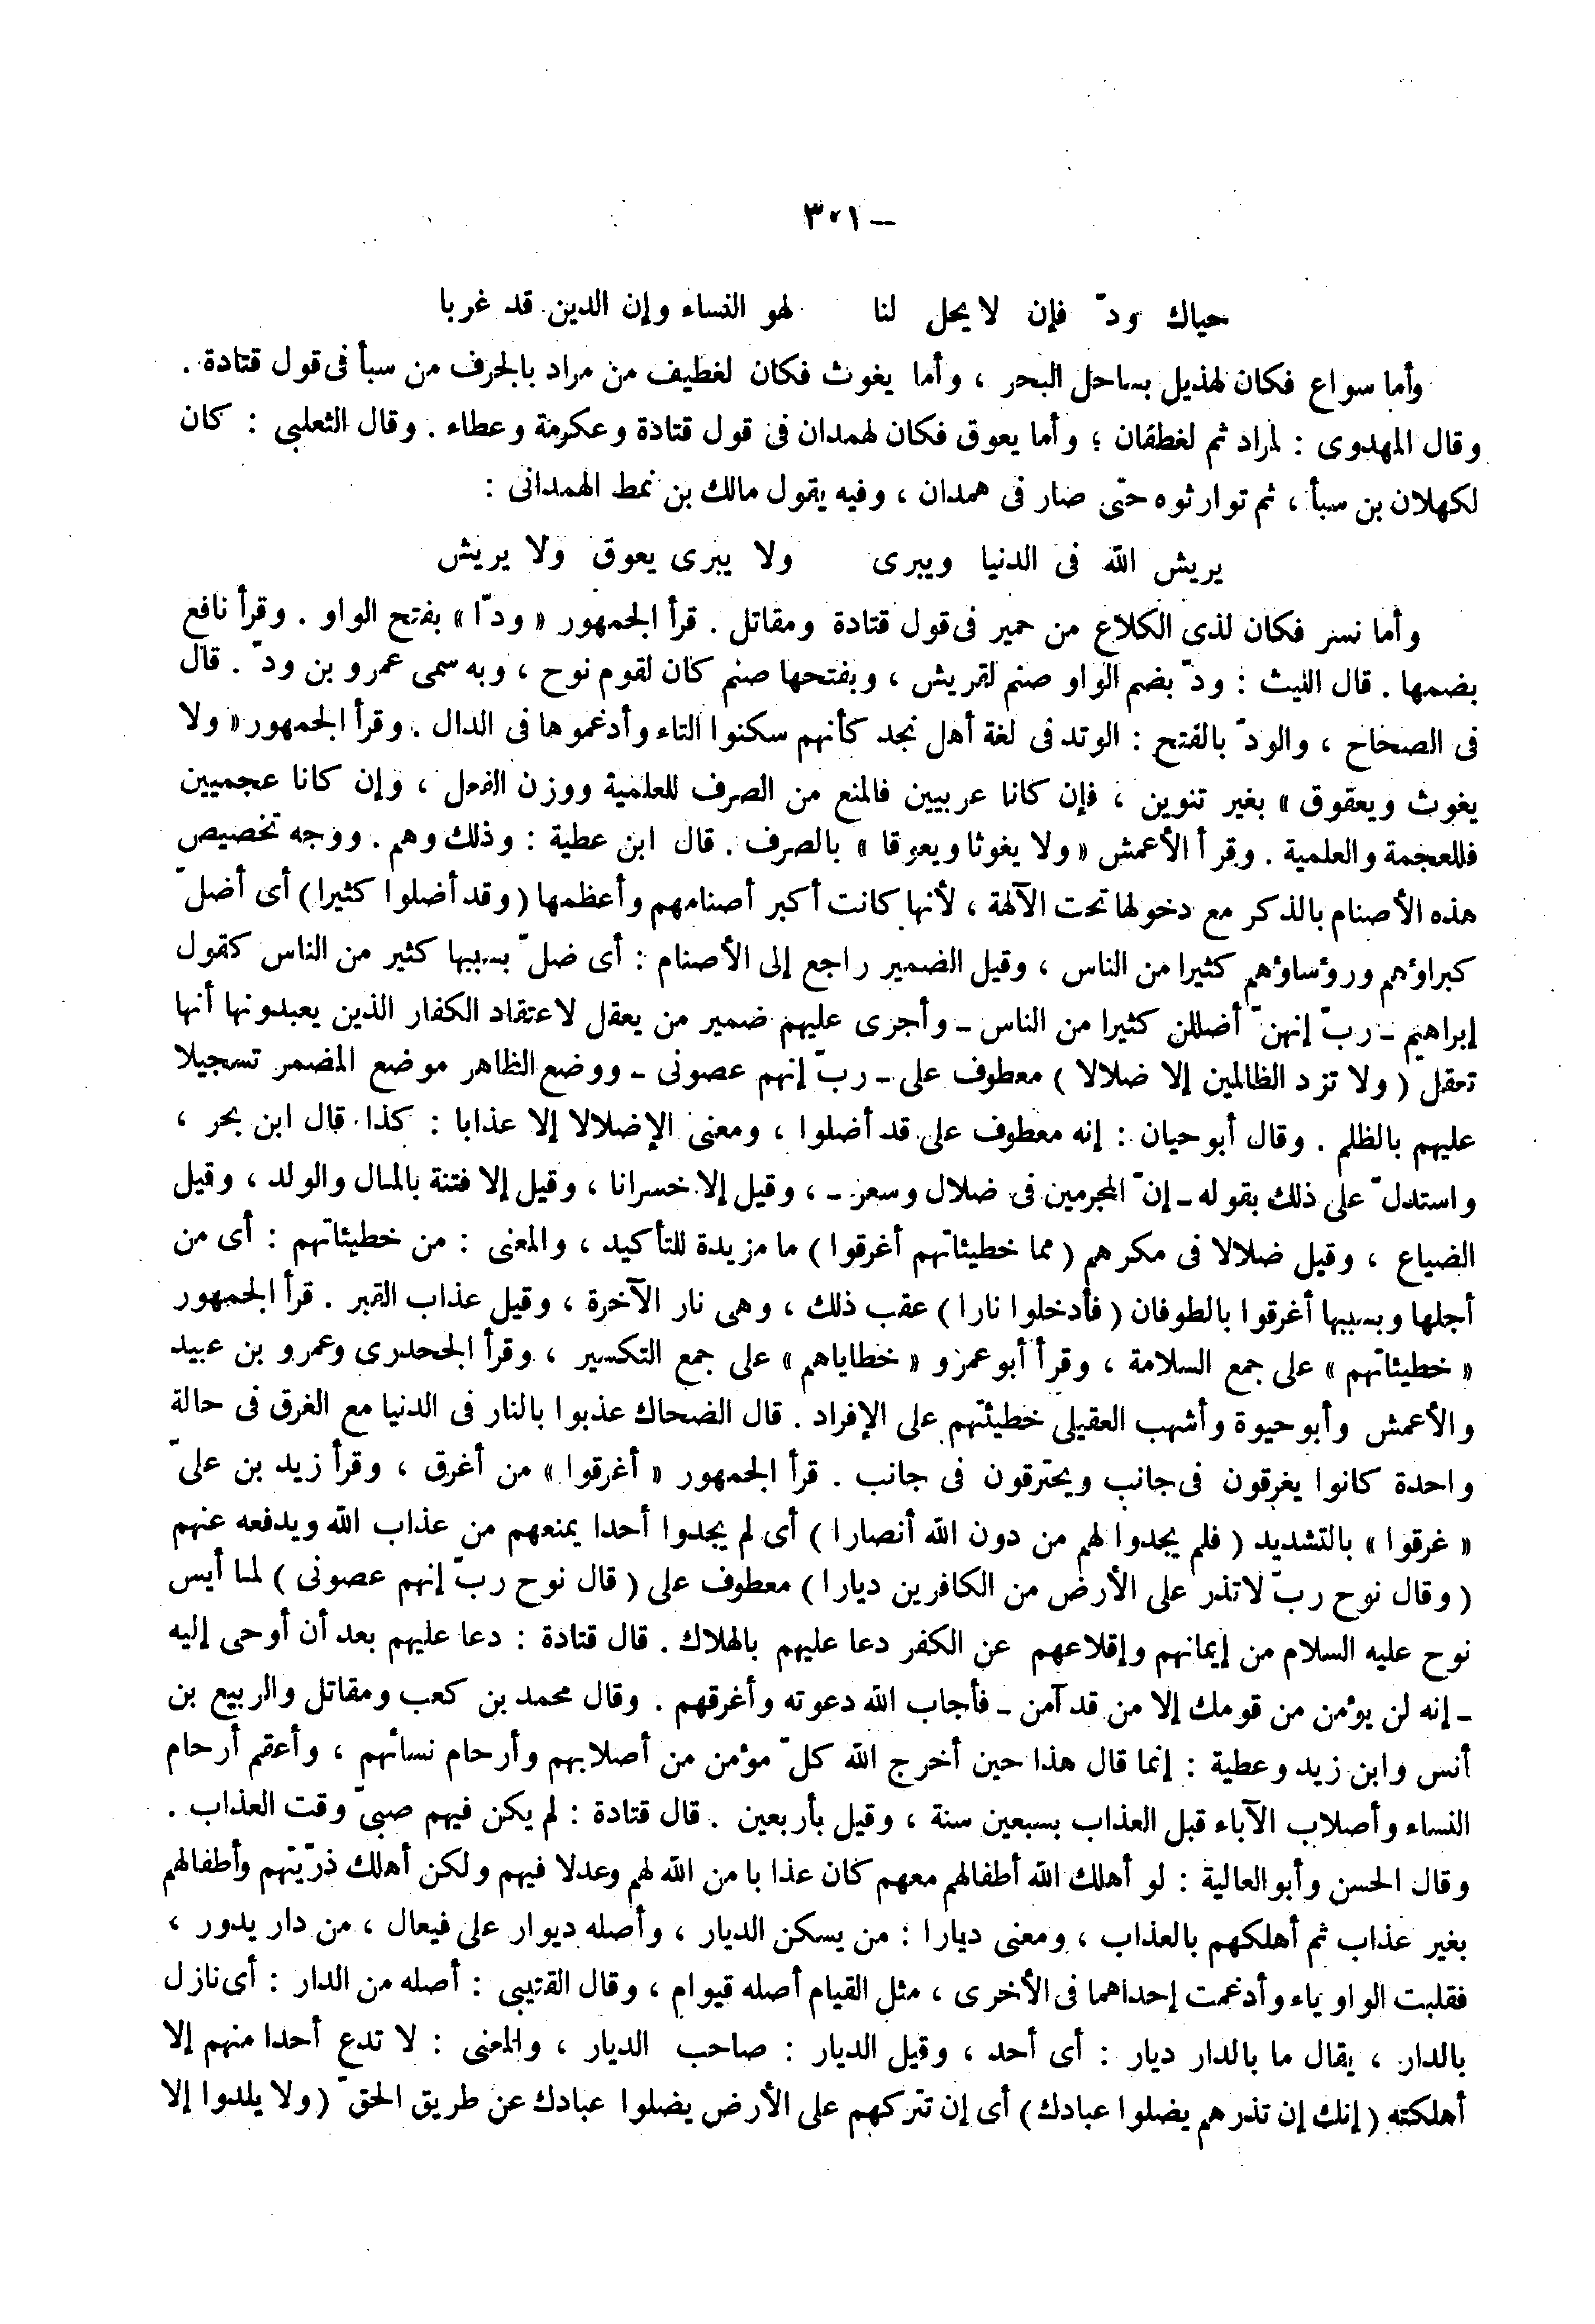 — ٣٠١
حياك ودّ فإن لا يحل لنا لهو النساء وإن الدين قد غربا
وأما سواع فكان لهذيل بساحل البحر ، وأما يغوث فكان لغطيف من مراد بالجرف من سبأ فى قول قتادة .
وقال المهدوى : لمراد ثم لغطفان ؛ وأما يعوق فكان لهمدان فى قول قتادة وعكرمة وعطاء . وقال الثعلبى : كان
لكهلان بن سبأ ، ثم توارثوه حتى صار فى همدان ، وفيه يقول مالك بن نمط الهمدانى :
يريش الله فى الدنيا ويبرى ولا يبرى يعوق ولا يريش
وأما نسر فكان لذى الكلاع من حمير فى قول قتادة ومقاتل . قرأ الجمهور « ودّا » بفتح الواو . وقرأ نافع
بضمها . قال الليث : ودّ بضم الواو صنم لقريش ، وبفتحها صنم كان لقوم نوح ، وبه سمى عمرو بن ودّ . قال
فى الصحاح ، والودّ بالفتح : الوتد فى لغة أهل نجد كأنهم سكنوا التاء وأدغموها فى الدال . وقرأ الجمهور « ولا
يغوث ويعقوق » بغير تنوين ، فإن كانا عربيين فالمنع من الصرف للعلمية ووزن الفعل ، وإن كانا عجميين
فللعجمة والعلمية . وقرأ الأعمش « ولا يغوثا ويعوقا » بالصرف . قال ابن عطية : وذلك وهم . ووجه تخصيص
هذه الأصنام بالذكر مع دخولها تحت الآلهة ، لأنها كانت أكبر أصنامهم وأعظمها ( وقد أضلوا كثيرا ) أى أضلّ
كبراؤهم ورؤساؤهم كثيرا من الناس ، وقيل الضمير راجع إلى الأصنام : أى ضلّ بسببها كثير من الناس كقول
إبراهيم ـ ربّ إنهنّ أضللن كثيرا من الناس ـ وأجرى عليهم ضمير من يعقل لاعتقاد الكفار الذين يعبدونها أنها
تعقل ( ولا تزد الظالمين إلا ضلالا ) معطوف على ـ ربّ إنهم عصونى ـ ووضع الظاهر موضع المضمر تسجيلا
عليهم بالظلم . وقال أبو حيان : إنه معطوف على قد أضلوا ، ومعنى الإضلالا إلا عذابا : كذا قال ابن بحر ،
واستدلّ على ذلك بقوله ـ إنّ المجرمين فى ضلال وسعر ـ ، وقيل إلا خسرانا ، وقيل إلا فتنة بالمال والولد ، وقيل
الضياع ، وقيل ضلالا فى مكرهم ( مما خطيئاتهم أغرقوا ) ما مزيدة للتأكيد ، والمعنى : من خطيئاتهم : أى من
أجلها وبسببها أغرقوا بالطوفان ( فأدخلوا نارا ) عقب ذلك ، وهى نار الآخرة ، وقيل عذاب القبر . قرأ الجمهور
« خطيئاتهم » على جمع السلامة ، وقرأ أبو عمرو « خطاياهم » على جمع التكسير ، وقرأ الجحدرى وعمرو بن عبيد
والأعمش وأبو حيوة وأشهب العقيلى خطيئتهم على الإفراد . قال الضحاك عذبوا بالنار فى الدنيا مع الغرق فى حالة
واحدة كانوا يغرقون فى جانب ويحترقون فى جانب . قرأ الجمهور « أغرقوا » من أغرق ، وقرأ زيد بن علىّ
« غرقوا » بالتشديد ( فلم يجدوا لهم من دون الله أنصارا ) أى لم يجدوا أحدا يمنعهم من عذاب الله ويدفعه عنهم
( وقال نوح ربّ لا تذر على الأرض من الكافرين ديارا ) معطوف على ( قال نوح ربّ إنهم عصونى ) لما أيس
نوح عليه السلام من إيمانهم وإقلاعهم عن الكفر دعا عليهم بالهلاك . قال قتادة : دعا عليهم بعد أن أوحى إليه
ـ إنه لن يؤمن من قومك إلا من قد آمن ـ فأجاب الله دعوته وأغرقهم . وقال محمد بن كعب ومقاتل والربيع بن
أنس وابن زيد وعطية : إنما قال هذا حين أخرج الله كلّ مؤمن من أصلابهم وأرحام نسائهم ، وأعقم أرحام
النساء وأصلاب الآباء قبل العذاب بسبعين سنة ، وقيل بأربعين . قال قتادة : لم يكن فيهم صبىّ وقت العذاب .
وقال الحسن وأبو العالية : لو أهلك الله أطفالهم معهم كان عذابا من الله لهم وعدلا فيهم ولكن أهلك ذرّيتهم وأطفالهم
بغير عذاب ثم أهلكهم بالعذاب ، ومعنى ديارا : من يسكن الديار ، وأصله ديوار على فيعال ، من دار يدور ،
فقلبت الواو ياء وأدغمت إحداهما فى الأخرى ، مثل القيام أصله قيوام ، وقال القتيبى : أصله من الدار : أى نازل
بالدار ، يقال ما بالدار ديار : أى أحد ، وقيل الديار : صاحب الديار ، والمعنى : لا تدع أحدا منهم إلا
أهلكته ( إنك إن تذرهم يضلوا عبادك ) أى إن تتركهم على الأرض يضلوا عبادك عن طريق الحقّ ( ولا يلدوا إلا